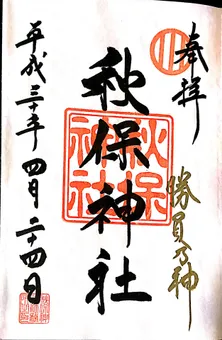 奉拝
勝負乃神
秋保神社
秋保
神社
平成三十年四月二十四日